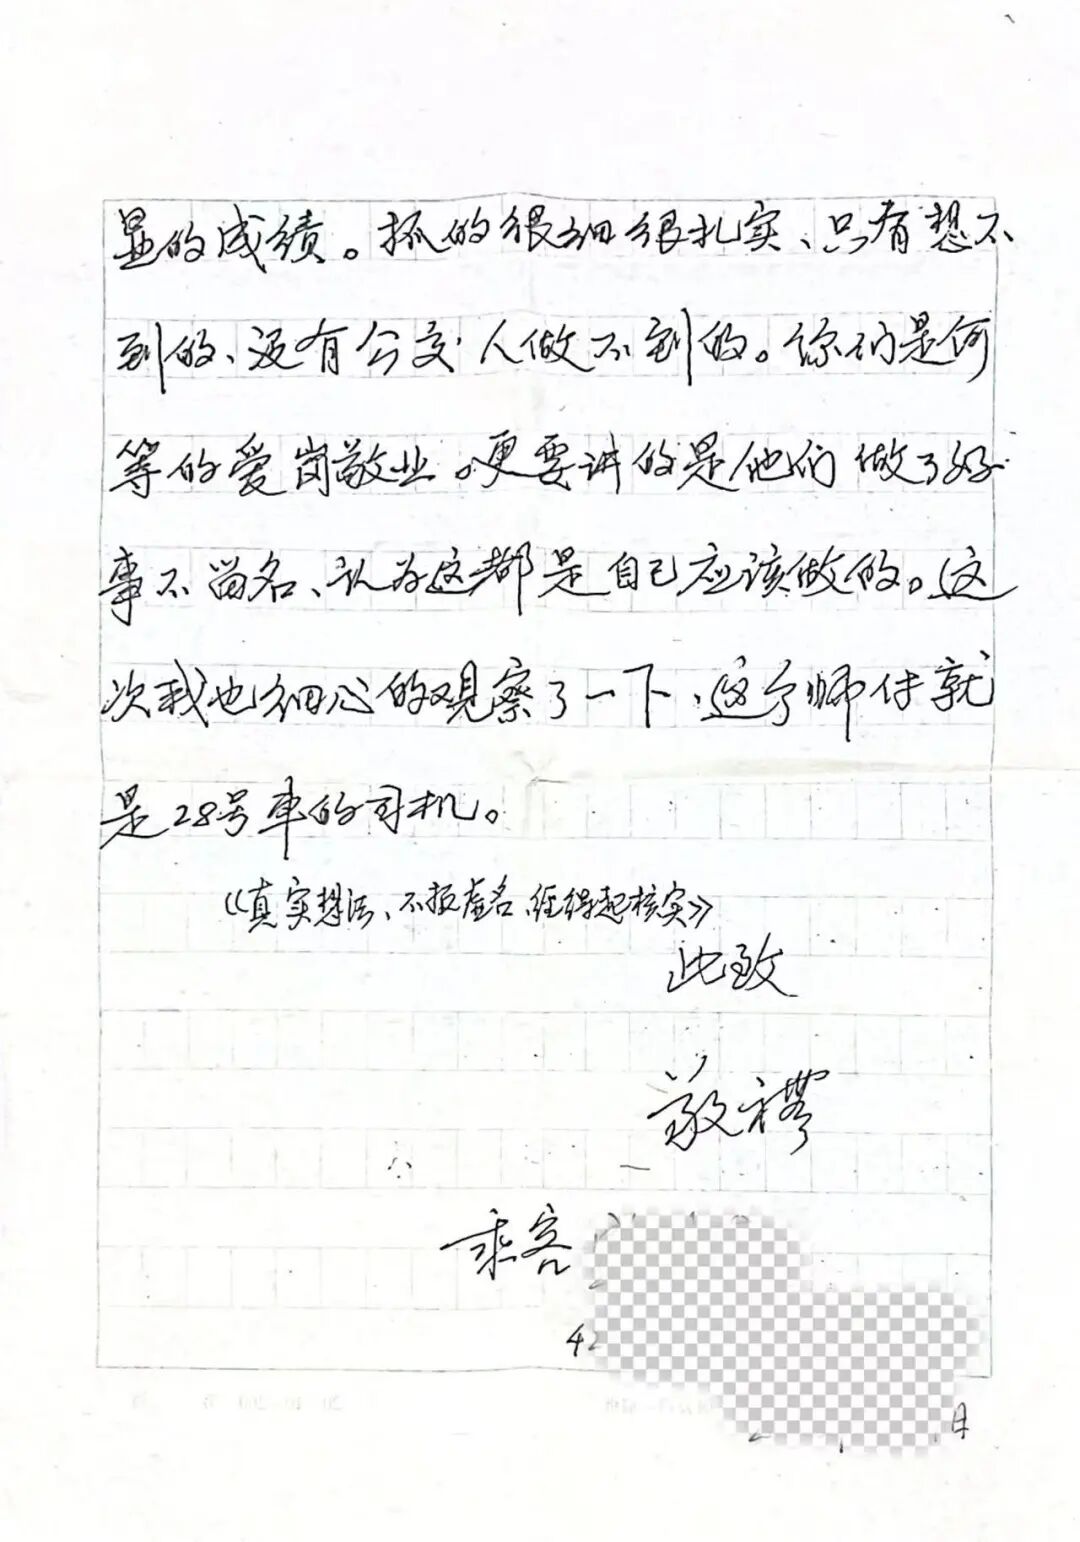 显的成绩。抓的很细很扎实、只有想不
到的、没有公交人做不到的。你们是何
等的爱岗敬业。更要讲的是他们做了好
事不留名、认为这都是自己应该做的。这
次我也细心的观察了一下、这个师付就
是28号车的司机。
《真实想法、不报虚名、经得起核实》
此致
敬礼
乘客
42
月